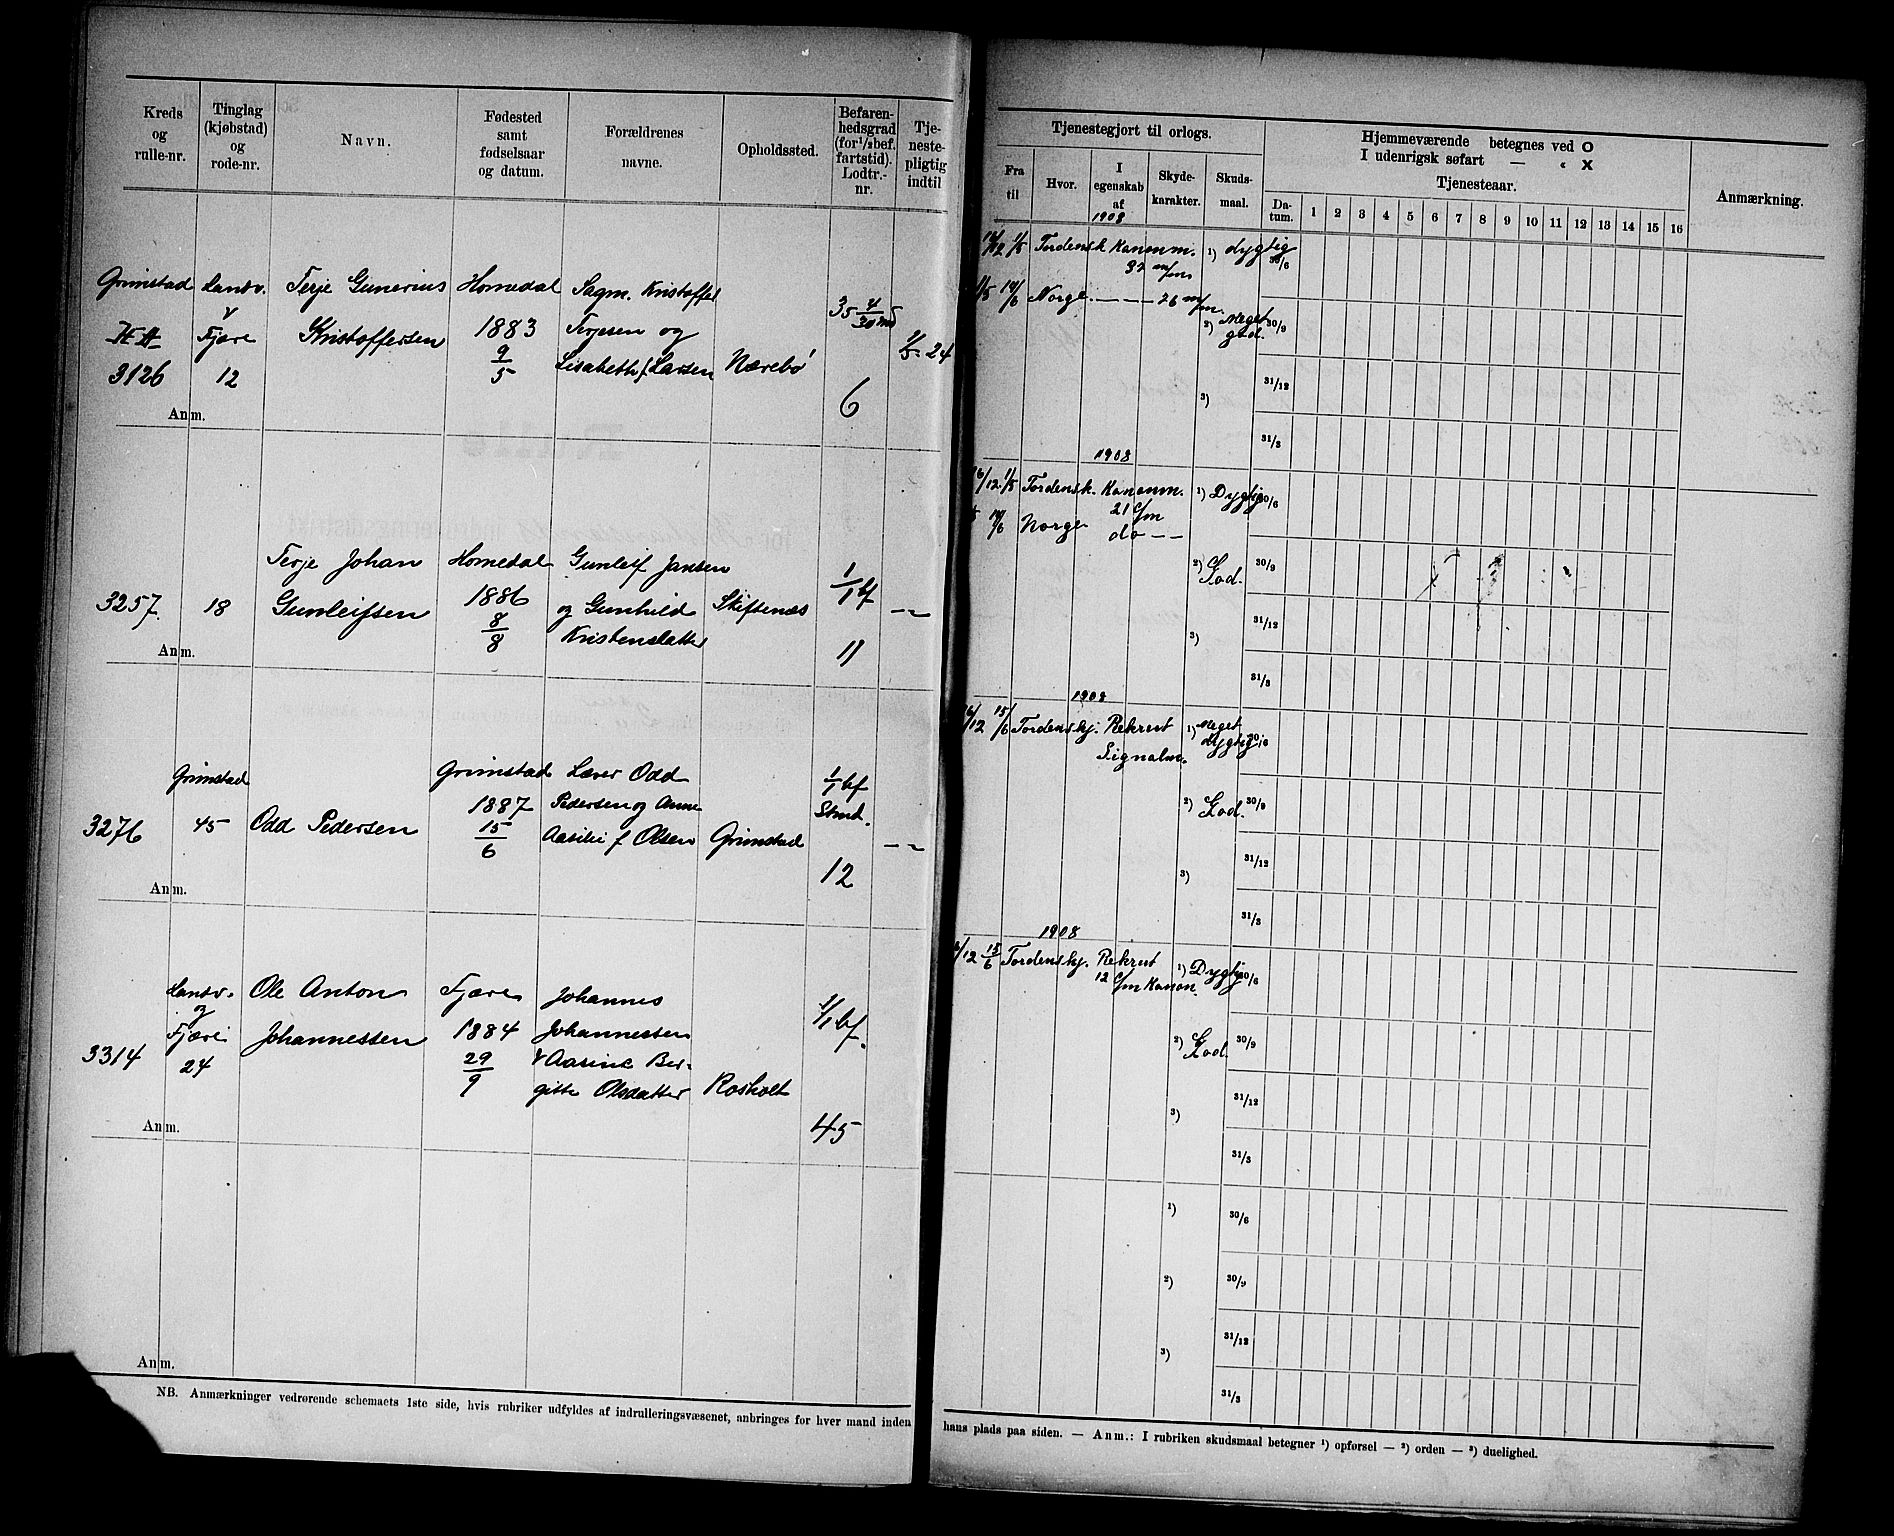 Kreds og rulle-nr.
Tinglag (kjøbstad) og rode-nr.
Navn.
Fødested samt fødselsaar og datum.
Forældrenes navne.
Opholdssted.
Befaren-hedsgrad (for 1/2 bef. fartstid). Lodtr.-nr.
Tje-neste-pligtig indtil
Grimstad
3126
Landv. & Fjære
12
Terje Gunerius
Kristoffersen
Homedal
1883
9/5
Sagm. Kristoffer
Terjesen og
Lisabeth f. Larsen
Nærebø
35 4/30 md
6
24
Anm.
3257
18
Terje Johan
Gunleifsen
Homedal
1886
8/8
Gunleif Jansen
og Gunhild
Kristensdatter
Skiftenæs
1/1 bf
11
— „ —
Anm.
3276
Grimstad
45
Odd Pedersen
Grimstad
1887
15/6
Lærer Odd
Pedersen og Anne
Aasilie f Olsen
Grimstad
1/1 bf
Stmt.
12
— „ —
Anm.
3314
Landv.
og
Fjære
24
Ole Anton
Johannessen
Fjære
1884
29/9
Johannes
Johannessen
& Aasine Ber-
gitte Olsdatter
Rosholt
1/1 bf.
45
Anm.
Anm.
NB. Anmærkninger vedrørende schemaets 1ste side, hvis rubriker udfyldes af indrulleringsvæsenet, anbringes for hver mand inden
Tjenestegjort til orlogs.
Hjemmeværende betegnes ved O
I udenrigsk søfart — « X
Tjenesteaar.
Anmærkning.
Fra til
Hvor.
I egenskab af
Skyde-karakter.
Skuds-maal.
Da-tum.
1 2 3 4 5 6 7 8 9 10 11 12 13 14 15 16
1908
16/12 1/5 Tordensk. Kanonm. 1) dygtig 30/6
37 m/m
1/5 14/6 Norge. — — — 26 m/m.
2) Meget god. 30/9
3) 31/12
31/3
1908
16/12 1/5 Tordensk. Kanonm. 1) Dygtig 30/6
21 c/m
14/6 Norge do — —
2) God. 30/9
3) 31/12
31/3
1908
16/12 15/6 Tordenskj. Rekrut 1) Meget dygtig 30/6
Signalm.
2) God. 30/9
3) 31/12
31/3
1908
16/12 15/6 Tordenskj. Rekrut 1) Dygtig 30/6
12 c/m Kanon.
2) God. 30/9
3) 31/12
31/3
1) 30/6
2) 30/9
3) 31/12
31/3
hans plads paa siden. — Anm.: I rubriken skudsmaal betegner ¹) opførsel — ²) orden — ³) duelighed.